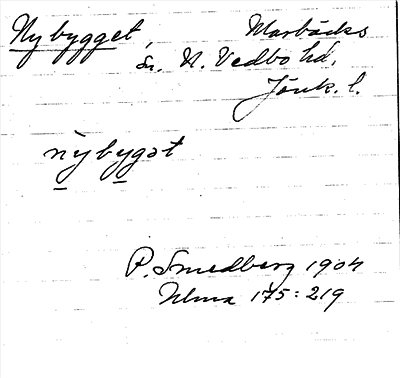 Nybygget, Marbäcks
sn, N. Vedbo hd,
Jönk. l.
nybygət
P. Smedberg 1904
Ulma 175:219